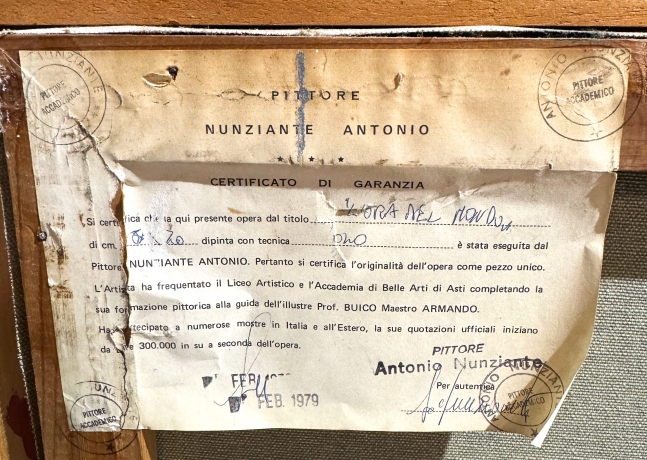 NUNZIANTE
PITTORE
ACCADEMICO
ANTONIO NUNZIANTE
PITTORE
ACCADEMICO
PITTORE
NUNZIANTE ANTONIO
CERTIFICATO DI GARANZIA
Si certifica che la qui presente opera dal titolo "L'ORA DEL MONDO"
di cm. dipinta con tecnica OLIO è stata eseguita dal
Pittore NUNZIANTE ANTONIO. Pertanto si certifica l'originalità dell'opera come pezzo unico.
L'Artista ha frequentato il Liceo Artistico e l'Accademia di Belle Arti di Asti completando la
sua formazione pittorica alla guida dell'illustre Prof. BUICO Maestro ARMANDO.
Ha partecipato a numerose mostre in Italia e all'Estero, la sue quotazioni ufficiali iniziano
da Lire 300.000 in su a seconda dell'opera.
PITTORE
Antonio Nunziante
Per autentica
FEB. 1979
PITTORE
ACCADEMICO
ANTONIO NUNZIANTE
PITTORE
ACCADEMICO